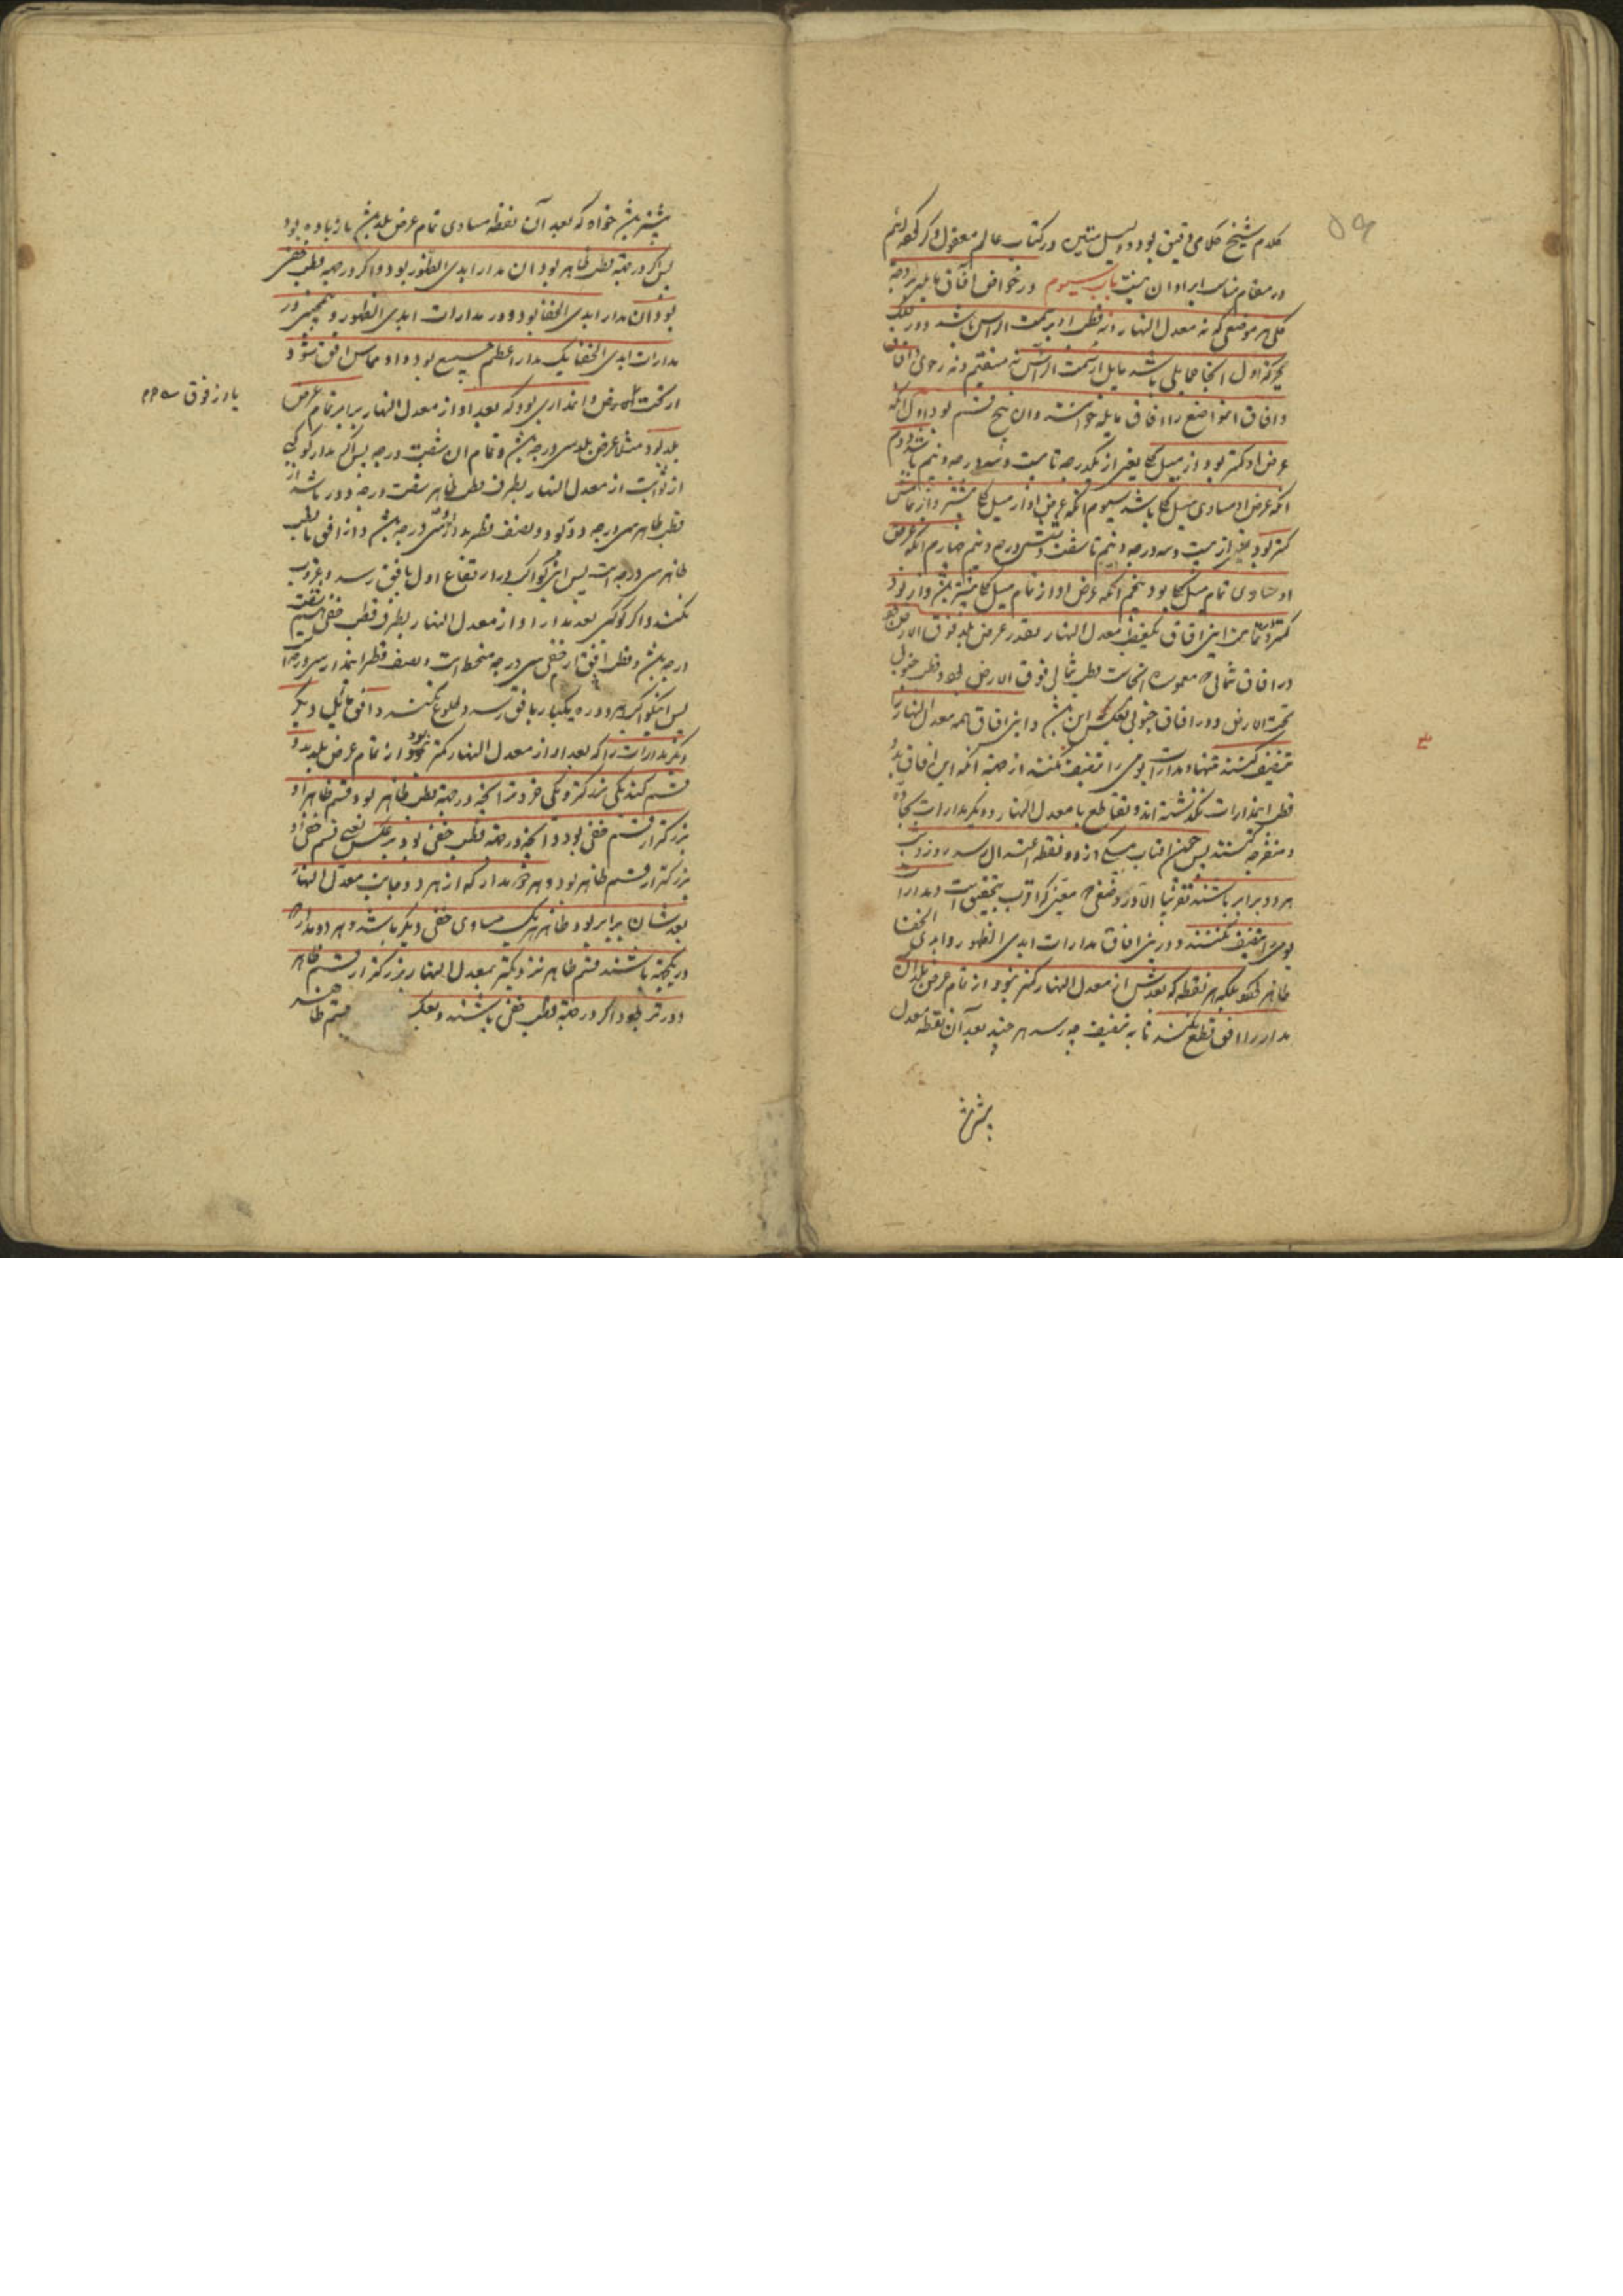 ۵۹
کلام شیخ کلامی دقیق بود و دلیل متین در کتاب عالم معقول ذکر
در مقام مناسب ایراد آن نیست باب سیوم در خواص آفاق مایله بر وجه
کلی هر موضعی که نه معدل النهار و نه قطب او بر سمت الراس باشد دور فلک
بحرکة اول آنجا حمایلی باشد مایل از سمت الراس نه مستقیم و نه رحوی و آفاق
و آفاق آن مواضع را آفاق مایله خوانند و آن پنج قسم بود اول آنکه
عرض او کمتر بود از میل کلی یعنی از یکدرجه تا بیست و سه درجه و نیم باشد دوم
آنکه عرض او مساوی میل کلی باشد سیوم آنکه عرض او از میل کلی بیشتر و از تمامش
کمتر بود یعنی از بیست و سه درجه و نیم تا شصت و شش درجه و نیم چهارم آنکه عرض
او مساوی تمام میل کلی بود پنجم آنکه عرض او از تمام میل کلی بیشتر باشد و از نود
کمتر این آفاق یک قطب معدل النهار بقدر عرض بلد فوق الارض
در آفاق شمالی که معموره آنجاست قطب شمالی فوق الارض بود و قطب جنوبی
تحت الارض و در آفاق جنوبی بعکس این باشد و این آفاق همه معدل النهار را
تنصیف کنند تنها و مدارات یومی را تنصیف نکنند از جهة آنکه این آفاق بدو
قطب این مدارات نگذشته اند و تقاطع با معدل النهار و دیگر مدارات بحاده
و منفرجه کنند پس چون آفتاب بیکی از دو نقطه اعتدال رسد روز و شب
هر دو برابر باشند تقریبا الا در وضعی معین که اقرب بتحقیق است و مدارات
یومی را تنصیف نکنند و در این آفاق مدارات ابدی الظهور و ابدی الخفا
ظاهر بلکه هر نقطه که بعدش از معدل النهار کمتر بود از تمام عرض بلد آن
مدار را افق قطع نکند تا به تنصیف چه رسد هر چند بعد آن نقطه از معدل
بیشتر باشد
بیشتر باشد خواه که بعد آن نقطه مساوی تمام عرض بلد باشد یا زیاده بود
پس اگر در جهة قطب ظاهر بود آن مدار ابدی الظهور بود و اگر در جهة قطب خفی
بود آن مدار ابدی الخفا بود و در مدارات ابدی الظهور و همچنین در
مدارات ابدی الخفا یک مدار اعظم جمیع بود و او مماس افق شود
از تحت الارض و آن مداری بود که بعد او از معدل النهار برابر تمام عرض
بلد بود مثلا عرض بلد سی درجه باشد و تمام آن شصت درجه پس اگر مدار کوکبی
از ثوابت از معدل النهار بطرف قطب ظاهر شصت درجه دور باشد از
قطب ظاهر سی درجه دور بود و نصف قطر مدارش سی درجه باشد و از افق تا قطب
ظاهر سی درجه است پس این کواکب در ارتفاع اول بافق رسد و غروب
نکنند و اگر کوکبی بعد مدار او از معدل النهار بطرف قطب خفی شصت
درجه باشد و قطب خفی سی درجه منحط است و نصف قطر این مدار سی درجه
پس این کواکب هر دوره یکبار بافق رسد و طلوع نکنند و افق مایل دیگر
دیگر مدارات را که بعد او از معدل النهار کمتر بود از تمام عرض بلد بدو
قسم کند یکی بزرگتر و یکی خردتر آنچه در جهة قطب ظاهر بود قسم ظاهر او
بزرگتر از قسم خفی بود و آنچه در جهة قطب خفی بود بر عکس یعنی قسم خفی او
بزرگتر از قسم ظاهر بود و هر دو مدار که از هر دو جانب معدل النهار
بعدشان برابر بود ظاهر هر یک مساوی خفی دیگر باشد و هر دو مدار که
در یکجهة باشند قسم ظاهر نزدیکتر بمعدل النهار بزرگتر از قسم ظاهر
دورتر بود اگر در جهة قطب خفی باشند و بعکس قسم ظاهر
یا از فوق